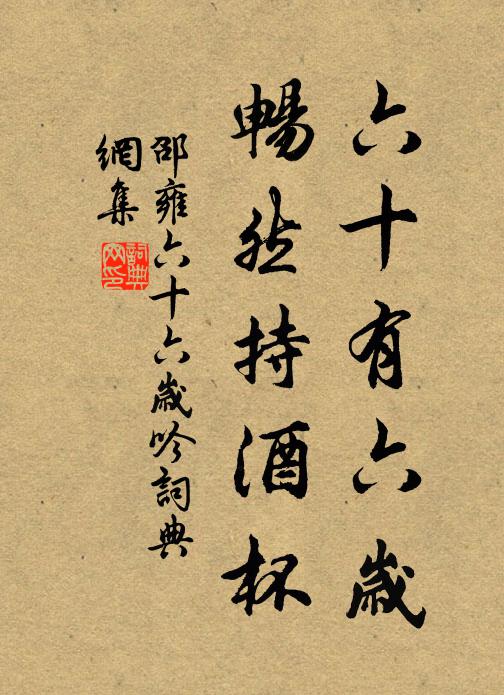 六十有六歲
暢然持酒杯
邵雍六十六歲吟詞典
網集
詞典
网印